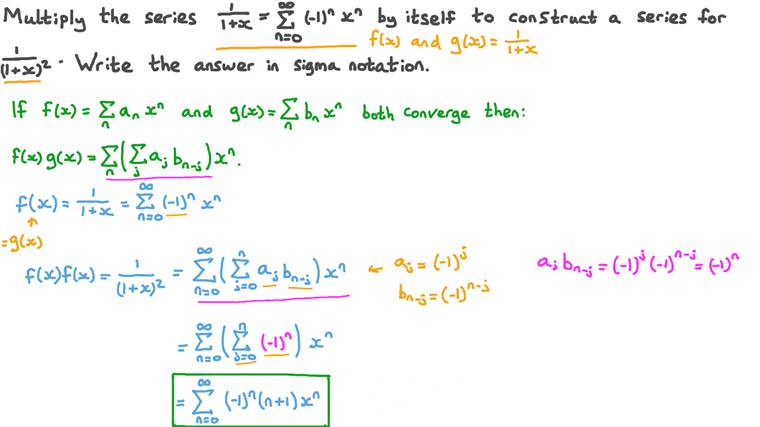 Multiply the series 1/(1+x) = ∑_{n=0}^{∞} (-1)^n x^n by itself to construct a series for
f(x) and g(x) = 1/(1+x)
1/(1+x)^2. Write the answer in sigma notation.
If f(x) = ∑_n a_n x^n and g(x) = ∑_n b_n x^n both converge then:
f(x)g(x) = ∑_n (∑_j a_j b_{n-j}) x^n.
f(x) = 1/(1+x) = ∑_{n=0}^{∞} (-1)^n x^n
↑
=g(x)
f(x)f(x) = 1/(1+x)^2 = ∑_{n=0}^{∞} (∑_{j=0}^{n} a_j b_{n-j}) x^n ← a_j = (-1)^j a_j b_{n-j} = (-1)^j (-1)^{n-j} = (-1)^n
b_{n-j} = (-1)^{n-j}
= ∑_{n=0}^{∞} (∑_{j=0}^{n} (-1)^n) x^n
= ∑_{n=0}^{∞} (-1)^n (n+1) x^n